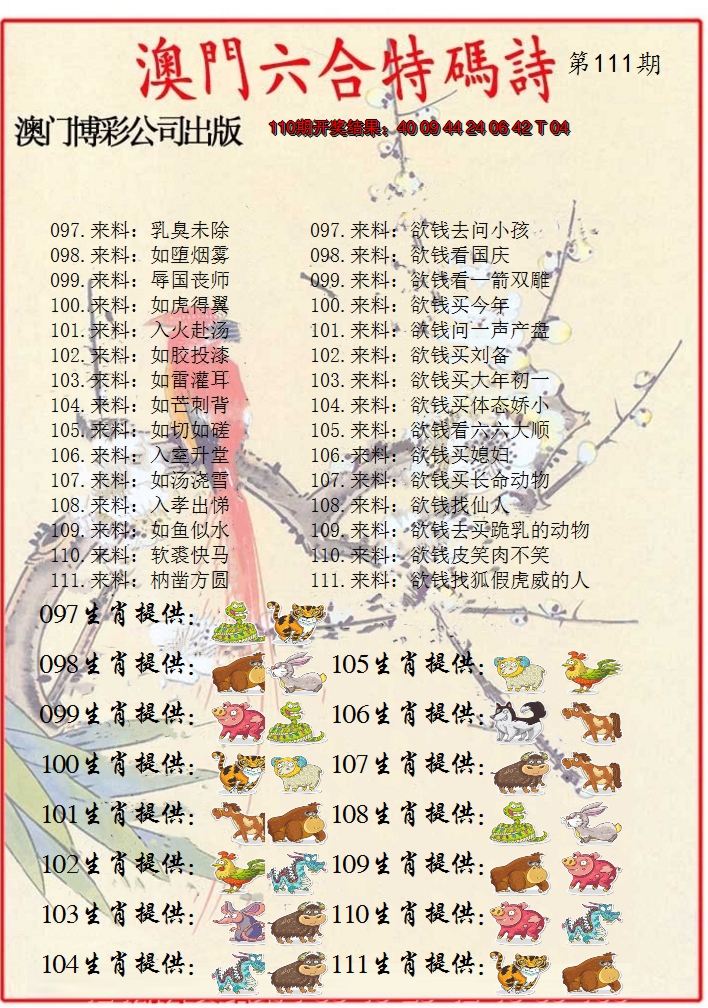 澳門六合特碼詩 第111期
澳门博彩公司出版 110期开奖结果：40 09 44 24 06 42 T 04
097.来料：乳臭未除 097.来料：欲钱去问小孩
098.来料：如堕烟雾 098.来料：欲钱看国庆
099.来料：辱国丧师 099.来料：欲钱看一箭双雕
100.来料：如虎得翼 100.来料：欲钱买今年
101.来料：入火赴汤 101.来料：欲钱问一声产盘
102.来料：如胶投漆 102.来料：欲钱买刘备
103.来料：如雷灌耳 103.来料：欲钱买大年初一
104.来料：如芒刺背 104.来料：欲钱买体态娇小
105.来料：如切如磋 105.来料：欲钱看六六大顺
106.来料：入室升堂 106.来料：欲钱买媳妇
107.来料：如汤浇雪 107.来料：欲钱买长命动物
108.来料：入孝出悌 108.来料：欲钱找仙人
109.来料：如鱼似水 109.来料：欲钱去买跪乳的动物
110.来料：软裘快马 110.来料：欲钱皮笑肉不笑
111.来料：枘凿方圆 111.来料：欲钱找狐假虎威的人
097生肖提供：
098生肖提供： 105生肖提供：
099生肖提供： 106生肖提供：
100生肖提供： 107生肖提供：
101生肖提供： 108生肖提供：
102生肖提供： 109生肖提供：
103生肖提供： 110生肖提供：
104生肖提供： 111生肖提供：